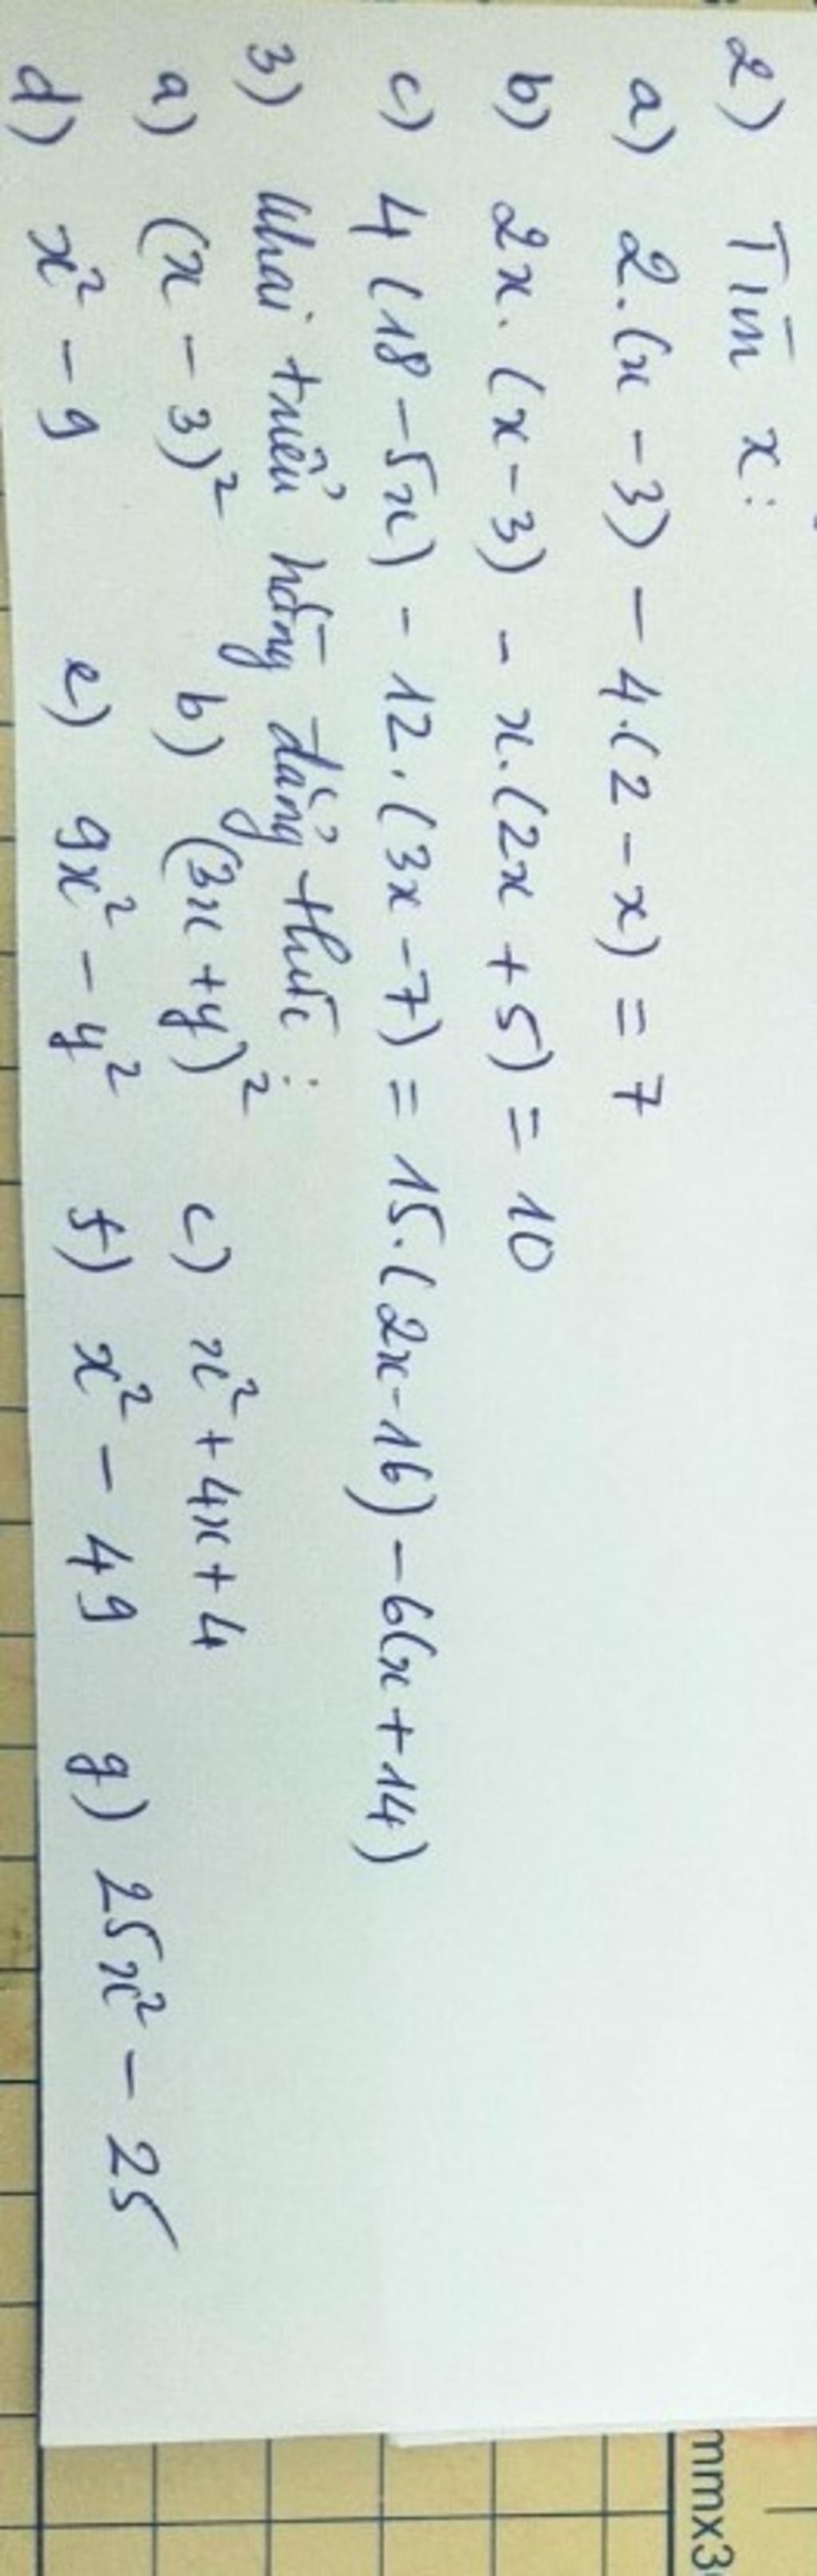 2) Tìm x:
a) 2.(x - 3) - 4.(2 - x) = 7
b) 2x.(x - 3) - x.(2x + 5) = 10
c) 4(18 - 5x) - 12.(3x - 7) = 15.(2x - 16) - 6(x + 14)
3) Khai triển hằng đẳng thức:
a) (x - 3)² b) (3x + y)² c) x² + 4x + 4
d) x² - 9 e) 9x² - y² f) x² - 49 g) 25x² - 25
mmx3